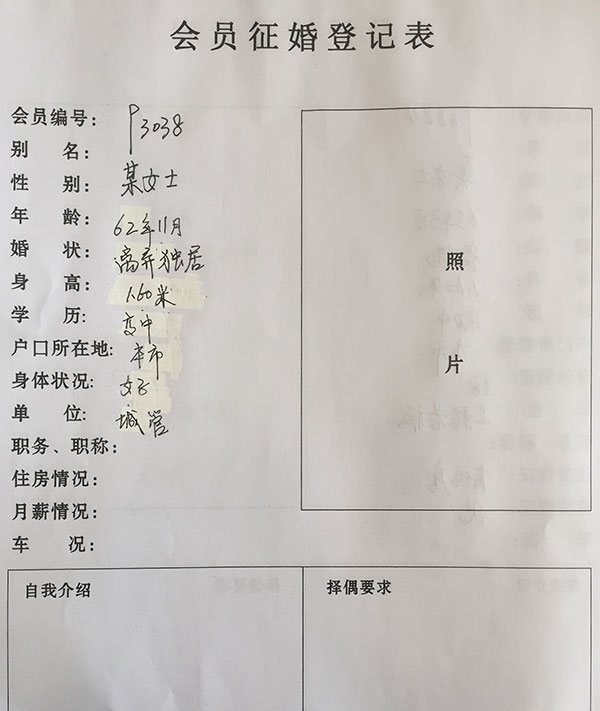 会员征婚登记表
会员编号: P3038
别 名:
性 别: 某女士
年 龄: 62年11月
婚 状: 离异独居
身 高: 1.60米
学 历: 高中
户口所在地: 本市
身体状况: 好
单 位: 城管
职务、职称:
住房情况:
月薪情况:
车 况:
照
片
自我介绍
择偶要求